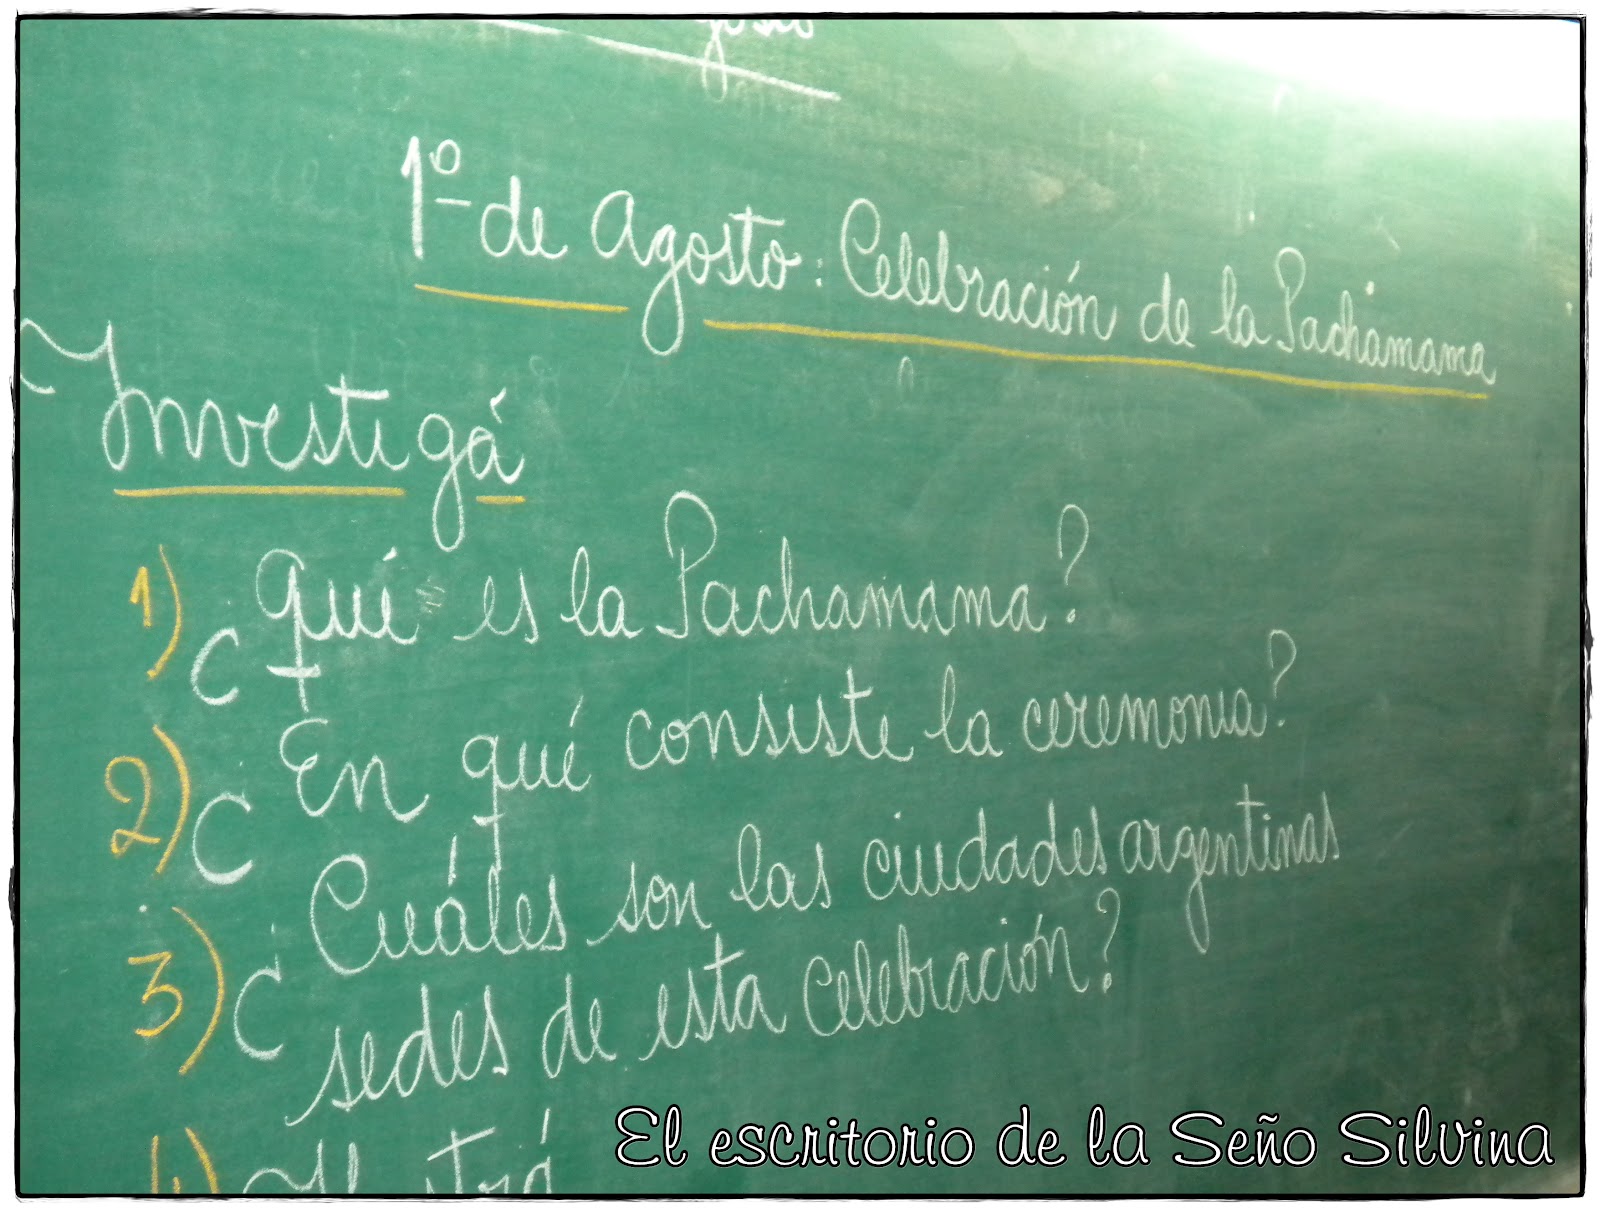 1º de Agosto: Celebración de la Pachamama
Investigá
1) ¿Qué es la Pachamama?
2) ¿En qué consiste la ceremonia?
3) ¿Cuáles son las ciudades argentinas
sedes de esta celebración?
4)
El escritorio de la Seño Silvina